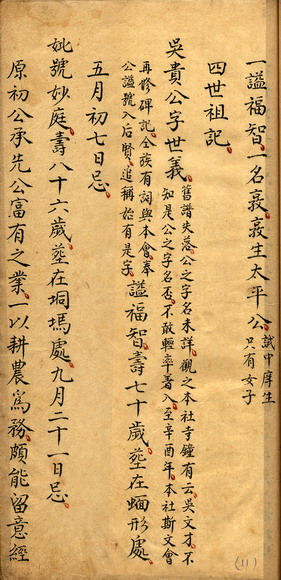 一謚福智一名亥亥生太平公試中庠生
只有女子
四世祖記
吳貴公字世義舊譜失落公之字名未詳觀之本社寺鐘有云吳文才不
知是公之字名否不敢輕率著入至辛酉年本社斯文會
再修碑記全族有詞與本會奉
公謚號入后賢追稱始有是字謚福智壽七十歲葬在蝒形處
五月初七日忌
妣號妙庭壽八十六歲葬在垌塢處九月二十一日忌
原初公承先公富有之業一以耕農為務頗能留意經
(11)